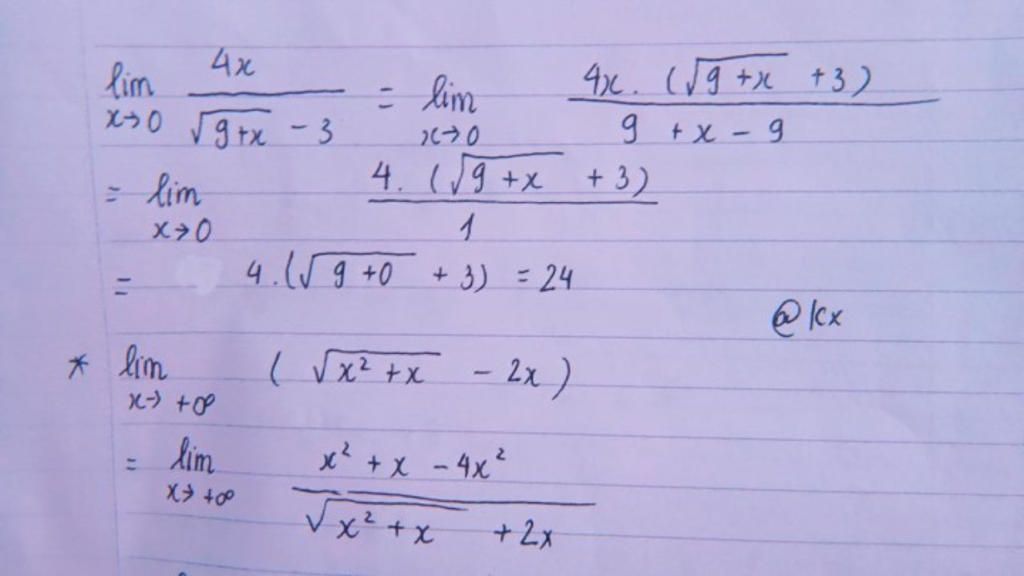 lim x→0 4x / (√(9+x) - 3) = lim x→0 4x. (√(9+x) + 3) / (9 + x - 9)
= lim x→0 4. (√(9+x) + 3) / 1
= 4.(√(9+0) + 3) = 24
@kx
* lim x→+∞ (√(x² + x) - 2x)
= lim x→+∞ (x² + x - 4x²) / (√(x² + x) + 2x)